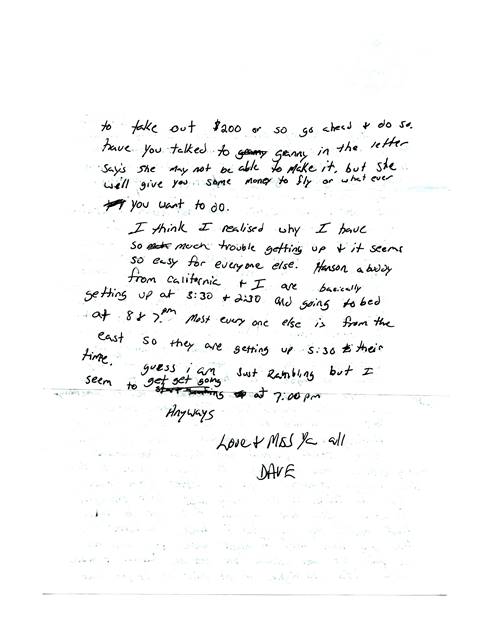 to take out $200 or so go ahead & do so.
have you talked to granny in the letter
says she may not be able to make it, but she
will give you some money to fly or what ever
you want to do.
I think I realised why I have
so much trouble getting up & it seems
so easy for everyone else. Hanson a buddy
from california & I are basically
getting up at 3:30 & 2:30 and going to bed
at 8 & 7.pm Most every one else is from the
east so they are getting up 5:30 their
time. guess i am Just Rambling but I
seem to get get going at 7:00 pm
Anyways
Love & Miss Ya all
DAVE